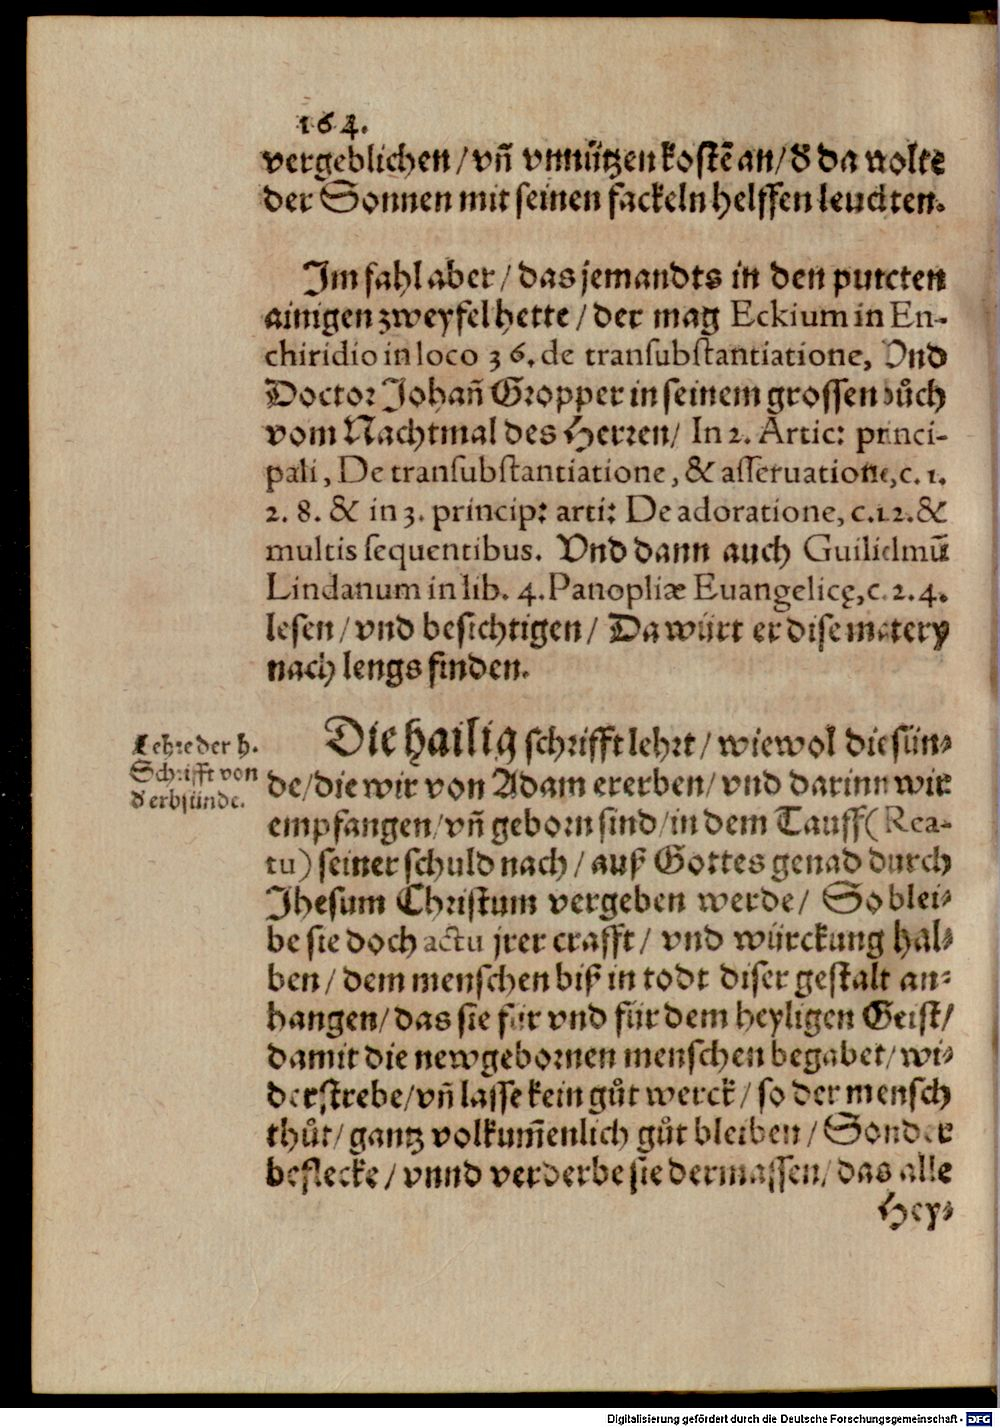 164.
vergeblichen / vñ vnnützen kostē an / d̕ da wolte
der Sonnen mit seinen fackeln helffen leuchten.
Im fahl aber / das jemandts in den puncten
ainigen zweyfel hette / der mag Eckium in En-
chiridio in loco 36. de transubstantiatione, Vnd
Doctor Johañ Gropper in seinem grossen bůch
vom Nachtmal des Herren / In 2. Artic: princi-
pali, De transubstantiatione, & asseruatione, c. 1.
2. 8. & in 3. princip: arti: De adoratione, c. 12. &
multis sequentibus. Vnd dann auch Guilielmū
Lindanum in lib. 4. Panopliæ Euangelicę, c. 2. 4.
lesen / vnd besichtigen / Da würt er dise matery
nach lengs finden.
Lehre der h.
Schrifft von
d̕ erbsünde.
Die hailig schrifft lehrt / wiewol die sün-
de / die wir von Adam ererben / vnd darinn wir
empfangen / vñ geborn sind / in dem Tauff (Rea-
tu) seiner schuld nach / auß Gottes genad durch
Jhesum Christum vergeben werde / So blei-
be sie doch actu jrer crafft / vnd würckung hal-
ben / dem menschen biß in todt diser gestalt an-
hangen / das sie für vnd für dem heyligen Geist /
damit die newgebornen menschen begabet / wi-
derstrebe / vñ lasse kein gůt werck / so der mensch
thůt / gantz volkum̄enlich gůt bleiben / Sonder
beflecke / vnnd verderbe sie dermassen / das alle
Hey-
Digitalisierung gefördert durch die Deutsche Forschungsgemeinschaft - DFG